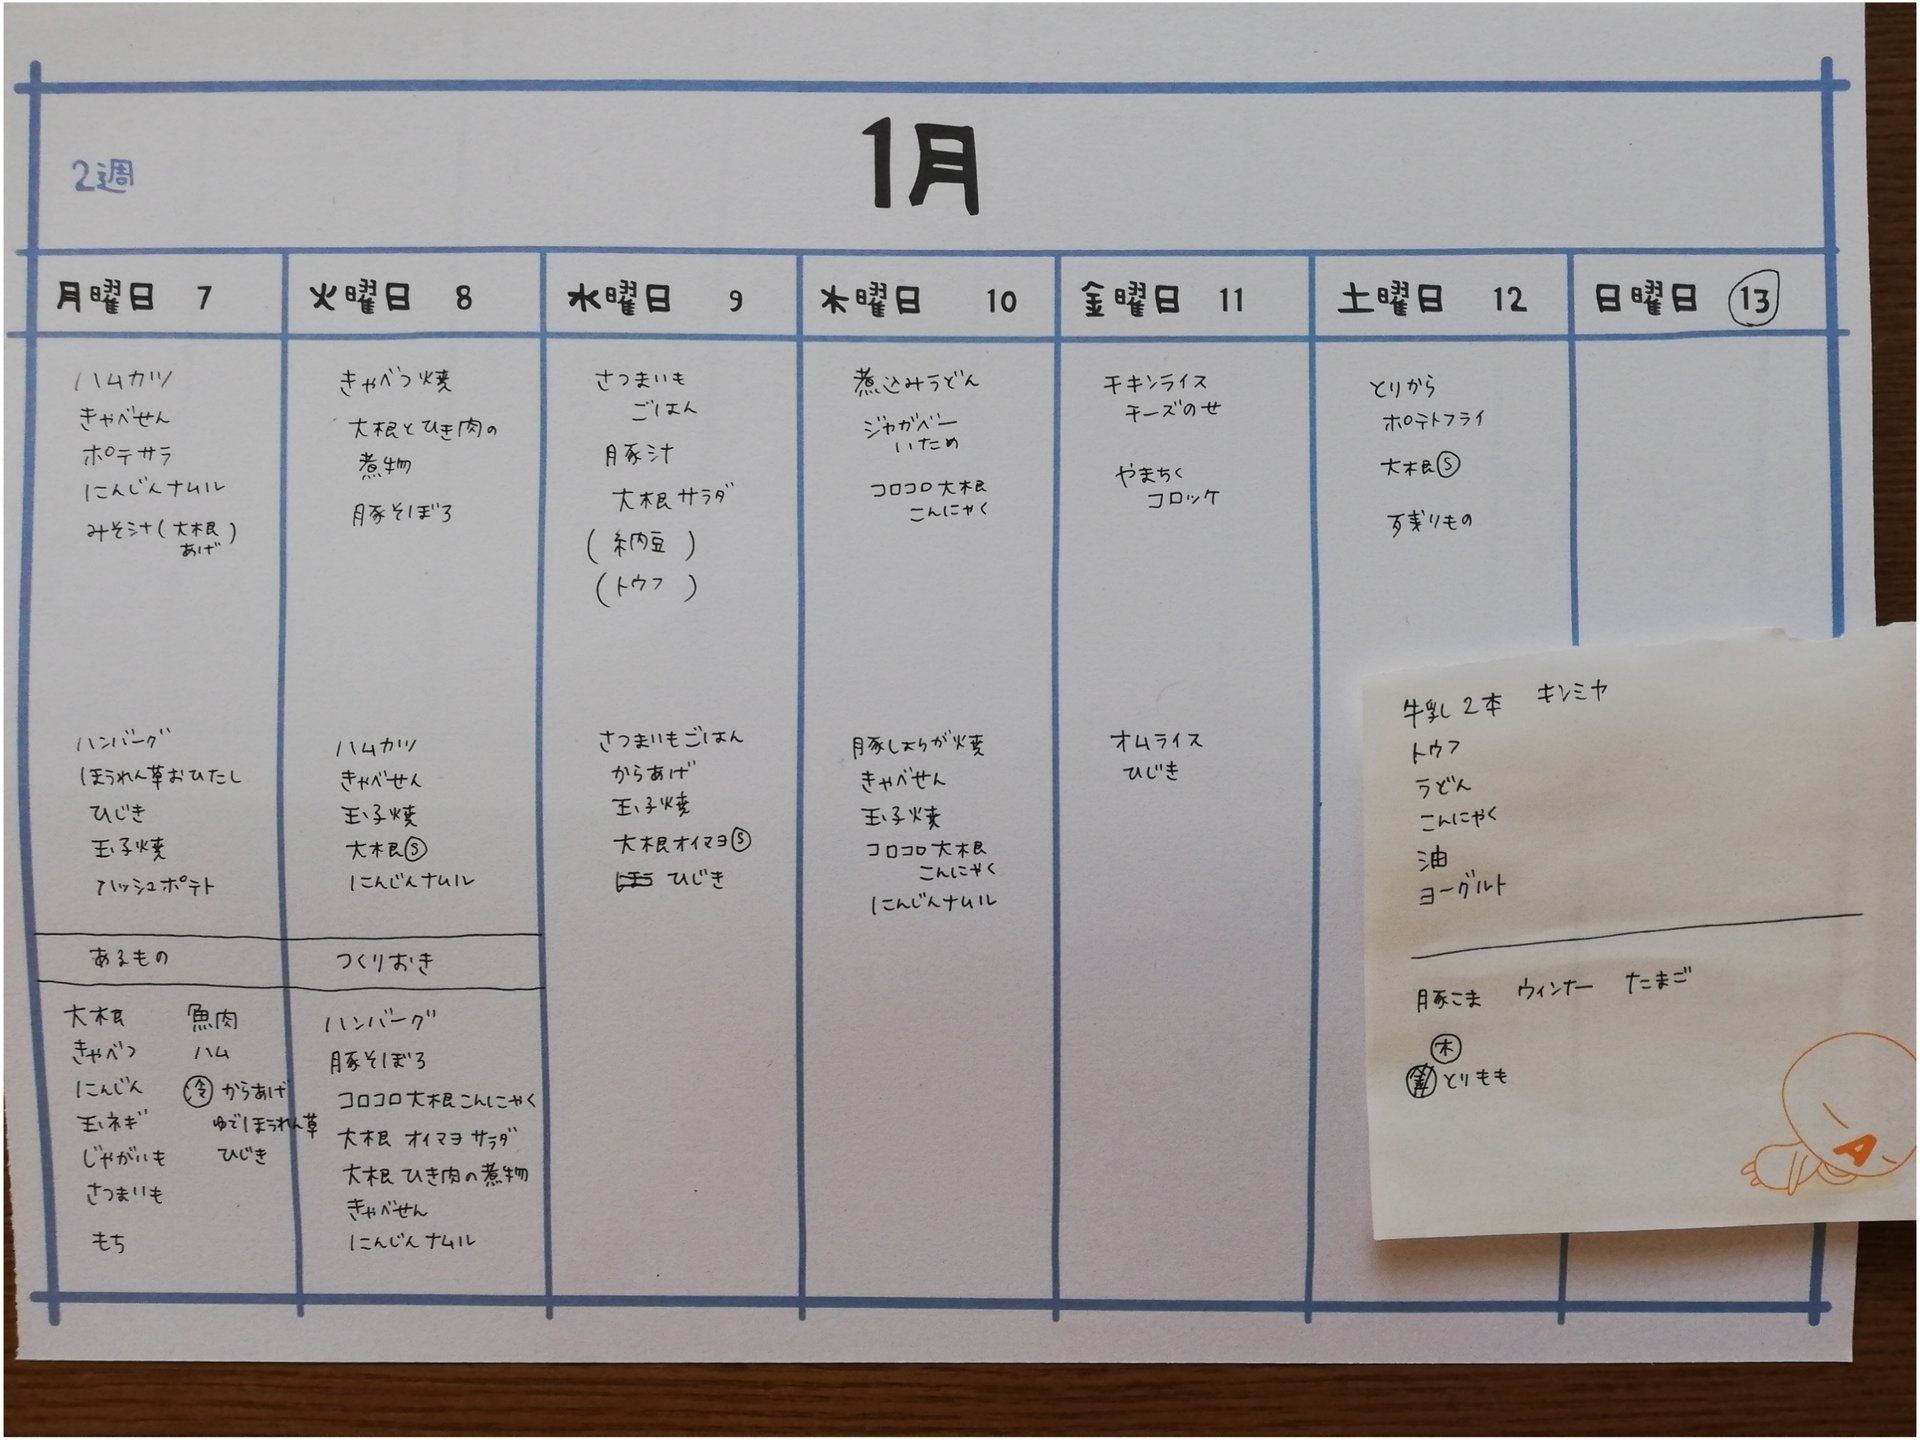 1月
2週
月曜日 7
火曜日 8
水曜日 9
木曜日 10
金曜日 11
土曜日 12
日曜日 13
ハムカツ
きゃべせん
ポテサラ
にんじんナムル
みそ汁(大根
あげ)
きゃべつ焼
大根とひき肉の
煮物
豚そぼろ
さつまいも
ごはん
豚汁
大根サラダ
(納豆)
(トウフ)
煮込みうどん
ジャガベー
いため
コロコロ大根
こんにゃく
チキンライス
チーズのせ
やまちく
コロッケ
とりから
ポテトフライ
大根Ⓢ
残りもの
ハンバーグ
ほうれん草おひたし
ひじき
玉子焼
ハッシュポテト
ハムカツ
きゃべせん
玉子焼
大根Ⓢ
にんじんナムル
さつまいもごはん
からあげ
玉子焼
大根オイマヨⓈ
ひじき
豚しょうが焼
きゃべせん
玉子焼
コロコロ大根
こんにゃく
にんじんナムル
オムライス
ひじき
あるもの
大根
きゃべつ
にんじん
玉ネギ
じゃがいも
さつまいも
もち
魚肉
ハム
冷 からあげ
ゆでほうれん草
ひじき
つくりおき
ハンバーグ
豚そぼろ
コロコロ大根こんにゃく
大根 オイマヨサラダ
大根ひき肉の煮物
きゃべせん
にんじんナムル
牛乳2本 キンミヤ
トウフ
うどん
こんにゃく
油
ヨーグルト
豚こま ウィンナー たまご
木
とりもも
A